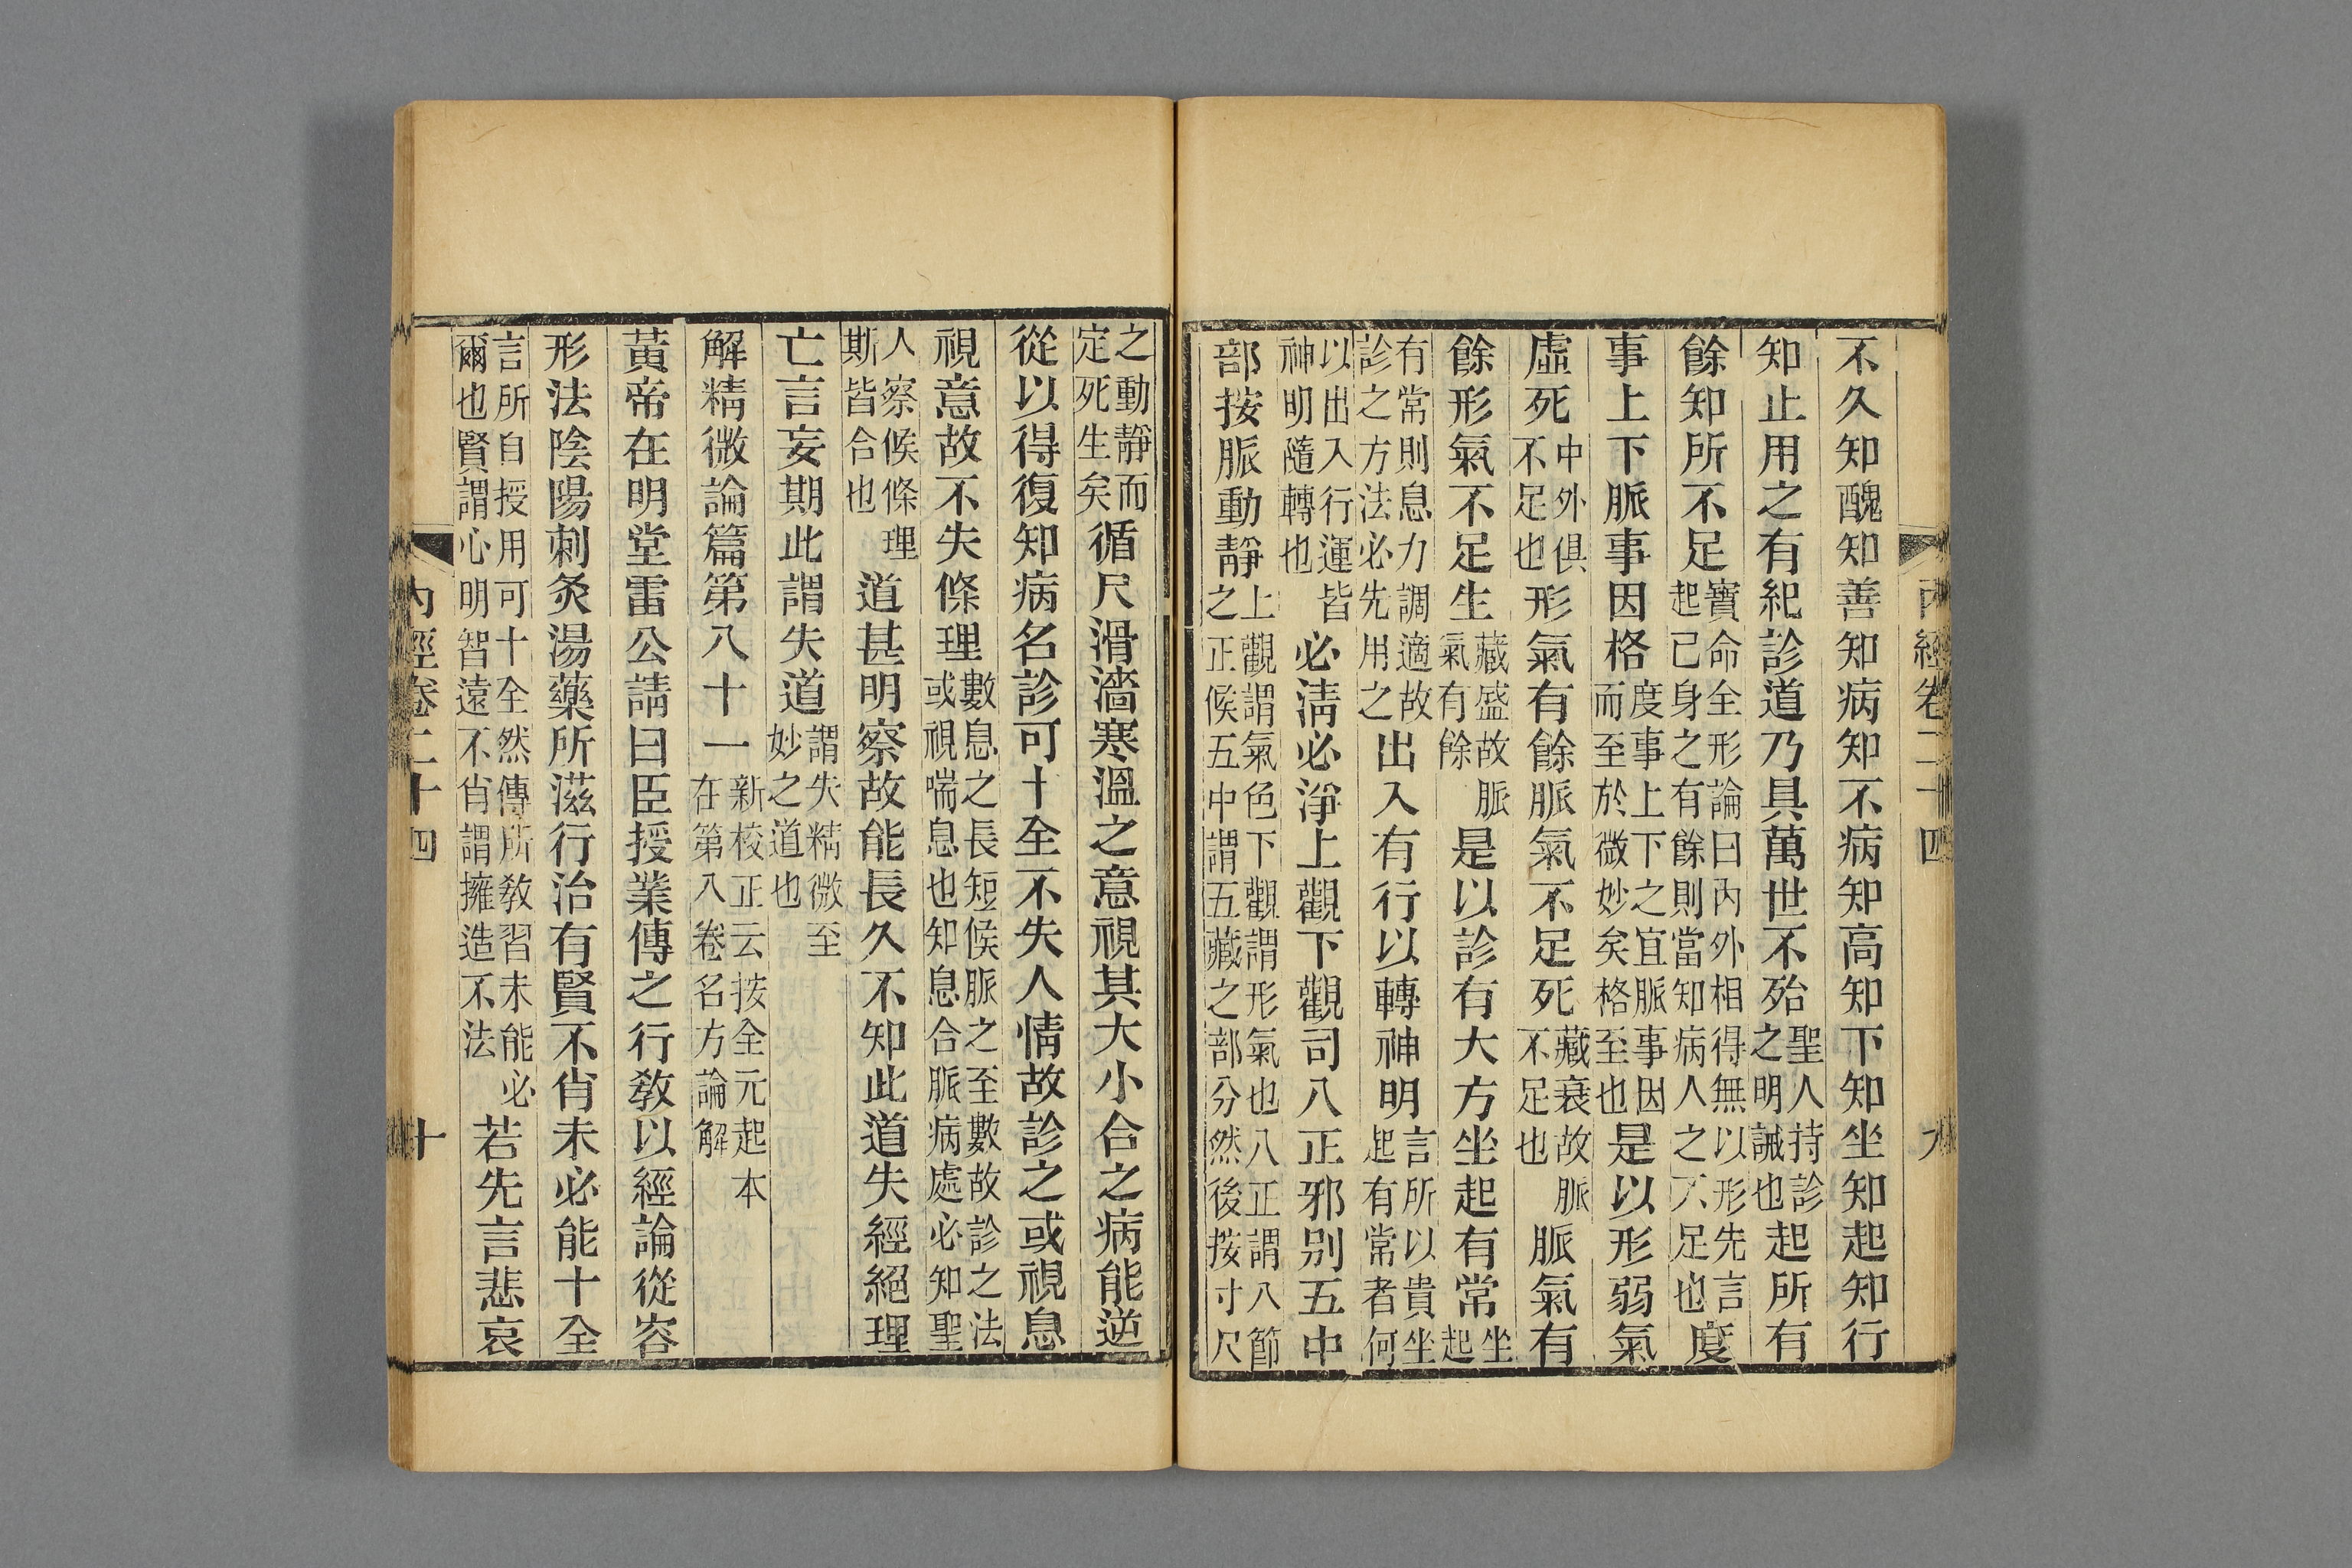 內經卷二十四　九
不久知醜知善知病知不病知高知下知坐知起知行
知止用之有紀診道乃具萬世不殆聖人持診之明誡也起所有
餘知所不足寶命全形論曰內外相得無以形先言起己身之有餘則當知病人之不足也度
事上下脈事因格度事上下之宜脈事因而至於微妙矣格至也是以形弱氣
虛死中外俱不足也形氣有餘脈氣不足死藏衰故脈不足也脈氣有
餘形氣不足生藏盛故脈氣有餘是以診有大方坐起有常坐起
有常則息力調適故診之方法必先用之出入有行以轉神明言所以貴坐起有常者何
以出入行運皆神明隨轉也必淸必淨上觀下觀司八正邪別五中
部按脈動靜上觀謂氣色下觀謂形氣也八正謂八節之正候五中謂五藏之部分然後按寸尺
之動靜而定死生矣循尺滑濇寒溫之意視其大小合之病能逆
從以得復知病名診可十全不失人情故診之或視息
視意故不失條理數息之長短候脈之至數故診之法或視喘息也知息合脈病處必知聖
人察候條理斯皆合也道甚明察故能長久不知此道失經絕理
亡言妄期此謂失道謂失精微至妙之道也
解精微論篇第八十一新校正云按全元起本在第八卷名方論解
黃帝在明堂雷公請曰臣授業傳之行敎以經論從容
形法陰陽刺灸湯藥所滋行治有賢不肖未必能十全
言所自授用可十全然傳所敎習未能必爾也賢謂心明智遠不肖謂擁造不法若先言悲哀
內經卷二十四　十